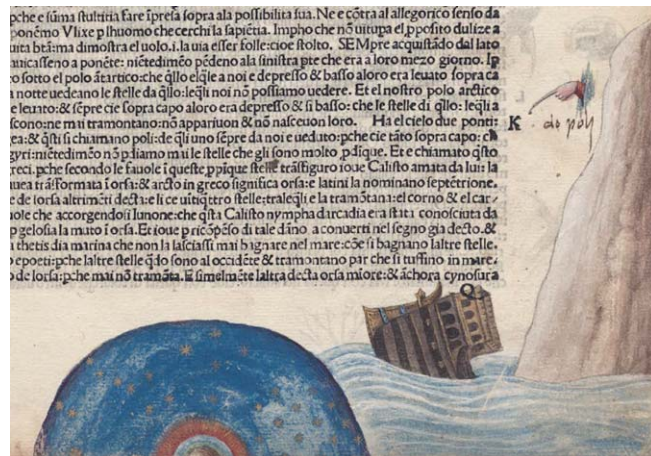 pche e sũma stultitia fare ĩpresa sopra ala possibilita sua. Ne e cõtra al allegorico senso da
ponẽmo Vlixe p lhuomo che cerchi la sapiẽtia. Impho che nõ uitupa el pposito dulixe a
uita btã:ma dimostra el uolo.i.la uia esser folle:cioe stolto. SEMpre acquistãdo dal lato
auicasseno a ponẽte: niẽtedimẽo pẽdeno ala sinistra pte che era a loro mezo giorno. Ip
o sotto el polo ãtartico:che qllo elqle a noi e depresso & basso aloro era leuato sopra ca
a notte uedeano le stelle da qllo:leqli noi nõ possiamo uedere. Et el nostro polo arctico
e leuato:& sẽpre cie sopra capo aloro era depresso & sĩ basso: che le stelle di qllo: leqli a
scono:ne mai tramontano:nõ appariuon & nõ nasceuon loro. Ha el cielo due ponti:
ea:& qsti si chiamano poli:de qli uno sẽpre da noi e ueduto:pche cie tãto sopra capo: ch
gyri:niẽtedimẽo nõ pdiamo mai le stelle che gli sono molto pdique. Et e chiamato qsto
reci. pche secondo le fauole ĩ queste ppique stelle trãsfiguro ioue Calisto amata da lui: la
uea trãsformata ĩ orsa:& arcto in greco significa orsa:e latini la nominano septẽtrione.
e de lorsa altrimẽti decta:e li ce uitiqttro stelle:traleqli e la tramõtana:el corno & el car
uole che accorgendosi Iunone:che qsta Calisto nympha darcadia era stata conosciuta da
p gelosia la muto ĩ orsa. Et ioue p ricõpẽso di tale dãno, a conuerti nel segno gia decto. &
a thetis dia marina che non la lasciassi mai bagnare nel mare:cõe si bagnano laltre stelle.
o epoeti:pche laltre stelle qdo sono al occidẽte & tramontano par che si tuffino in mare.
de lorsa:pche mai nõ tramõta. E simelmẽte laltra decta orsa miore:& ãchora cynosura
K
Q